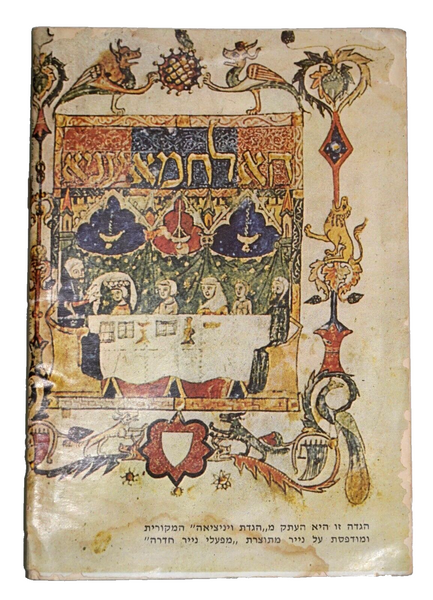 הא לחמא עניא
הגדה זו היא העתק מ„הגדת ויניציאה" המקורית
ומודפסת על נייר מתוצרת „מפעלי נייר חדרה"